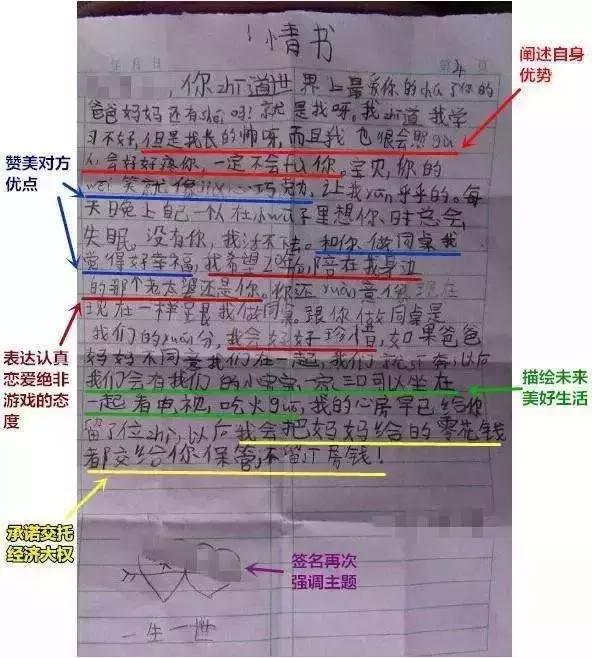 情书
年 月 日
第 页
，你zhi道世界上最爱你的chu了你的
爸爸妈妈还有shei吗！就是我呀。我zhi道我学
习不好，但是我长的帅呀，而且我也很会照gu
人会好好疼你，一定不会 你。宝贝，你的
wei笑就像 心巧 ，让我yun乎乎的。每
天晚上自己一人在小wu子里想你时总会
失眠。没有你，我活不 。和你做同桌我
觉得好幸福，我希望 陪在我身边
的那个老太婆还是你，你还yuan意像现在
现在一样 我做同桌。跟你做同桌是
我们的yuan分，我会好好珍惜，如果爸爸
妈妈不同意我们在一起，我们就 奔，以后
我们会有我们的小宝宝一家三口可以坐在
一起看电视，吃火guo，我的心房早已给你
留了位zhi，以后我会把妈妈给的零花钱
都交给你保管，不留 房钱！
一生一世
阐述自身
优势
赞美对方
优点
表达认真
恋爱绝非
游戏的态
度
描绘未来
美好生活
承诺交托
经济大权
签名再次
强调主题